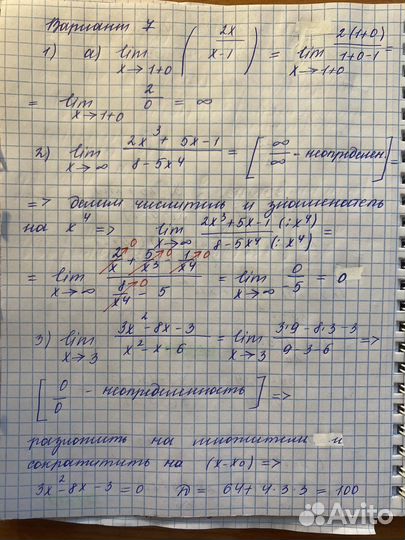 Вариант 7
1) а) lim x→1+0 (2x / x-1) = lim x→1+0 2(1+0) / 1+0-1 =
= lim x→1+0 2/0 = ∞
2) lim x→∞ 2x³+5x-1 / 8-5x⁴ = [∞/∞ - неопределен.] =
=> делим числитель и знаменатель
на x⁴ => lim x→∞ 2x³+5x-1 (:x⁴) / 8-5x⁴ (:x⁴) =
= lim x→∞ 2/x→0 + 5/x³→0 - 1/x⁴→0 / 8/x⁴→0 - 5 = lim x→∞ 0/-5 = 0
3) lim x→3 3x²-8x-3 / x²-x-6 = lim x→3 3·9-8·3-3 / 9-3-6 =>
[0/0 - неопределенность] =>
разложить на множители и
сократить на (x-x₀) =>
3x²-8x-3=0 D = 64+4·3·3 = 100
Avito